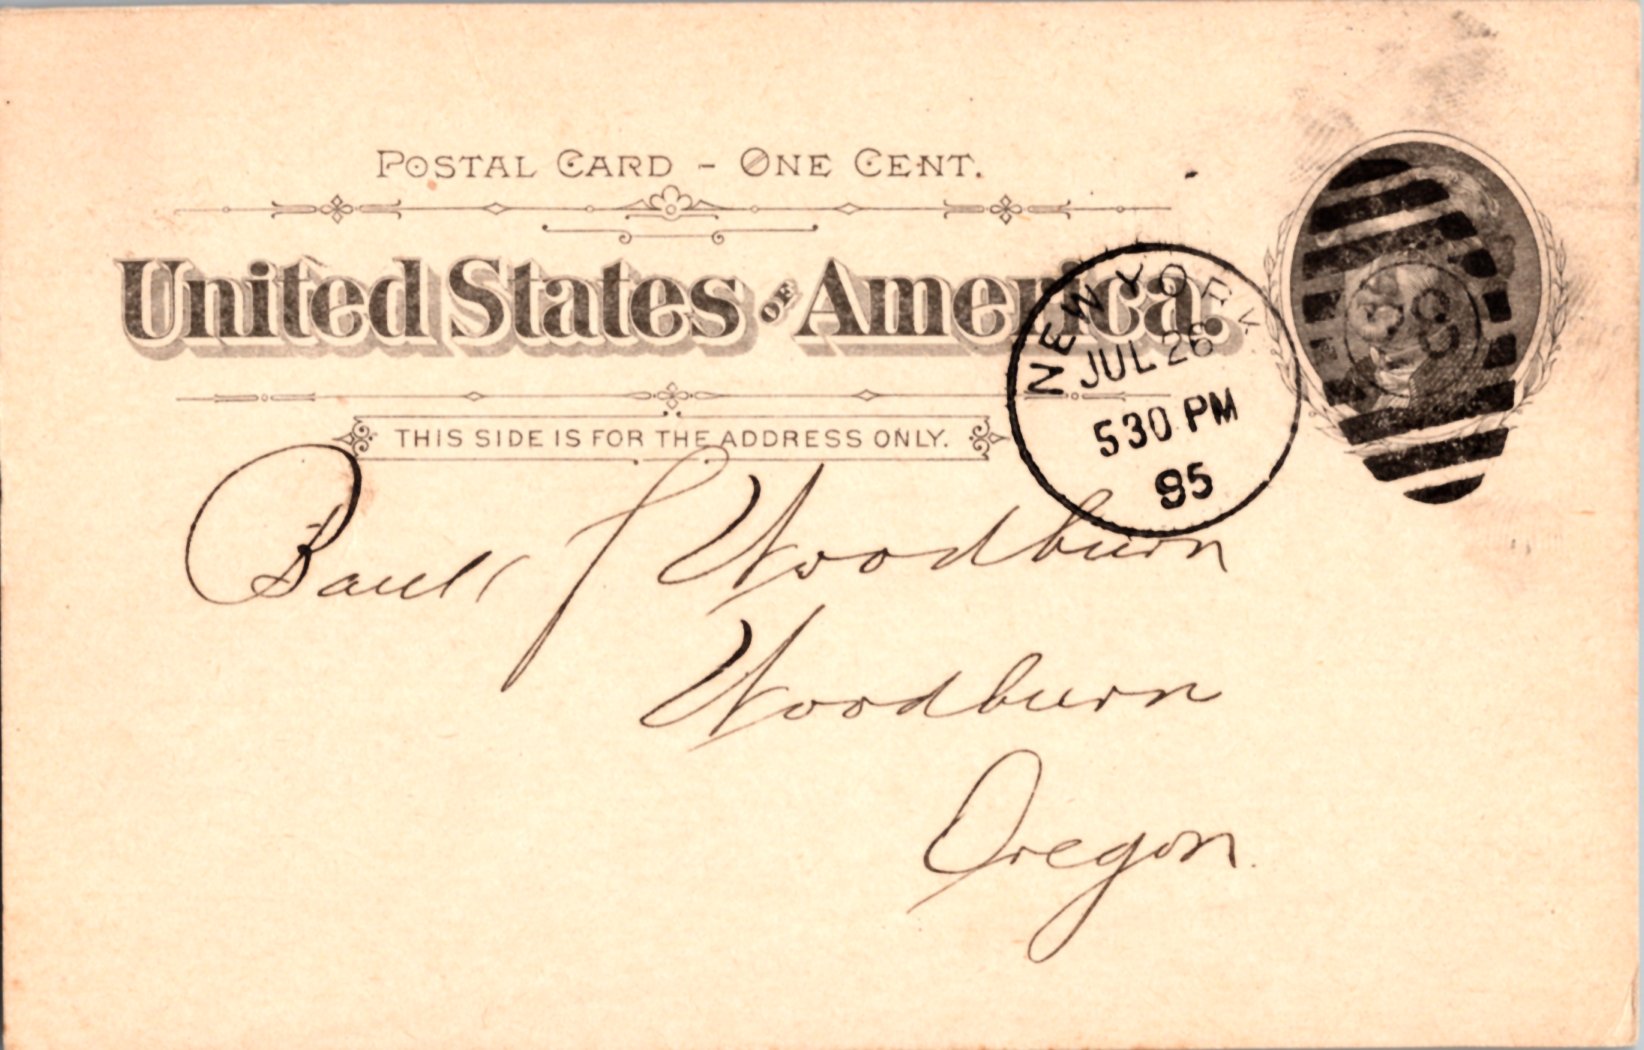 POSTAL CARD - ONE CENT.
United States OF America.
THIS SIDE IS FOR THE ADDRESS ONLY.
NEW YORK
JUL 26
530 PM
95
Bank of Woodburn
Woodburn
Oregon.